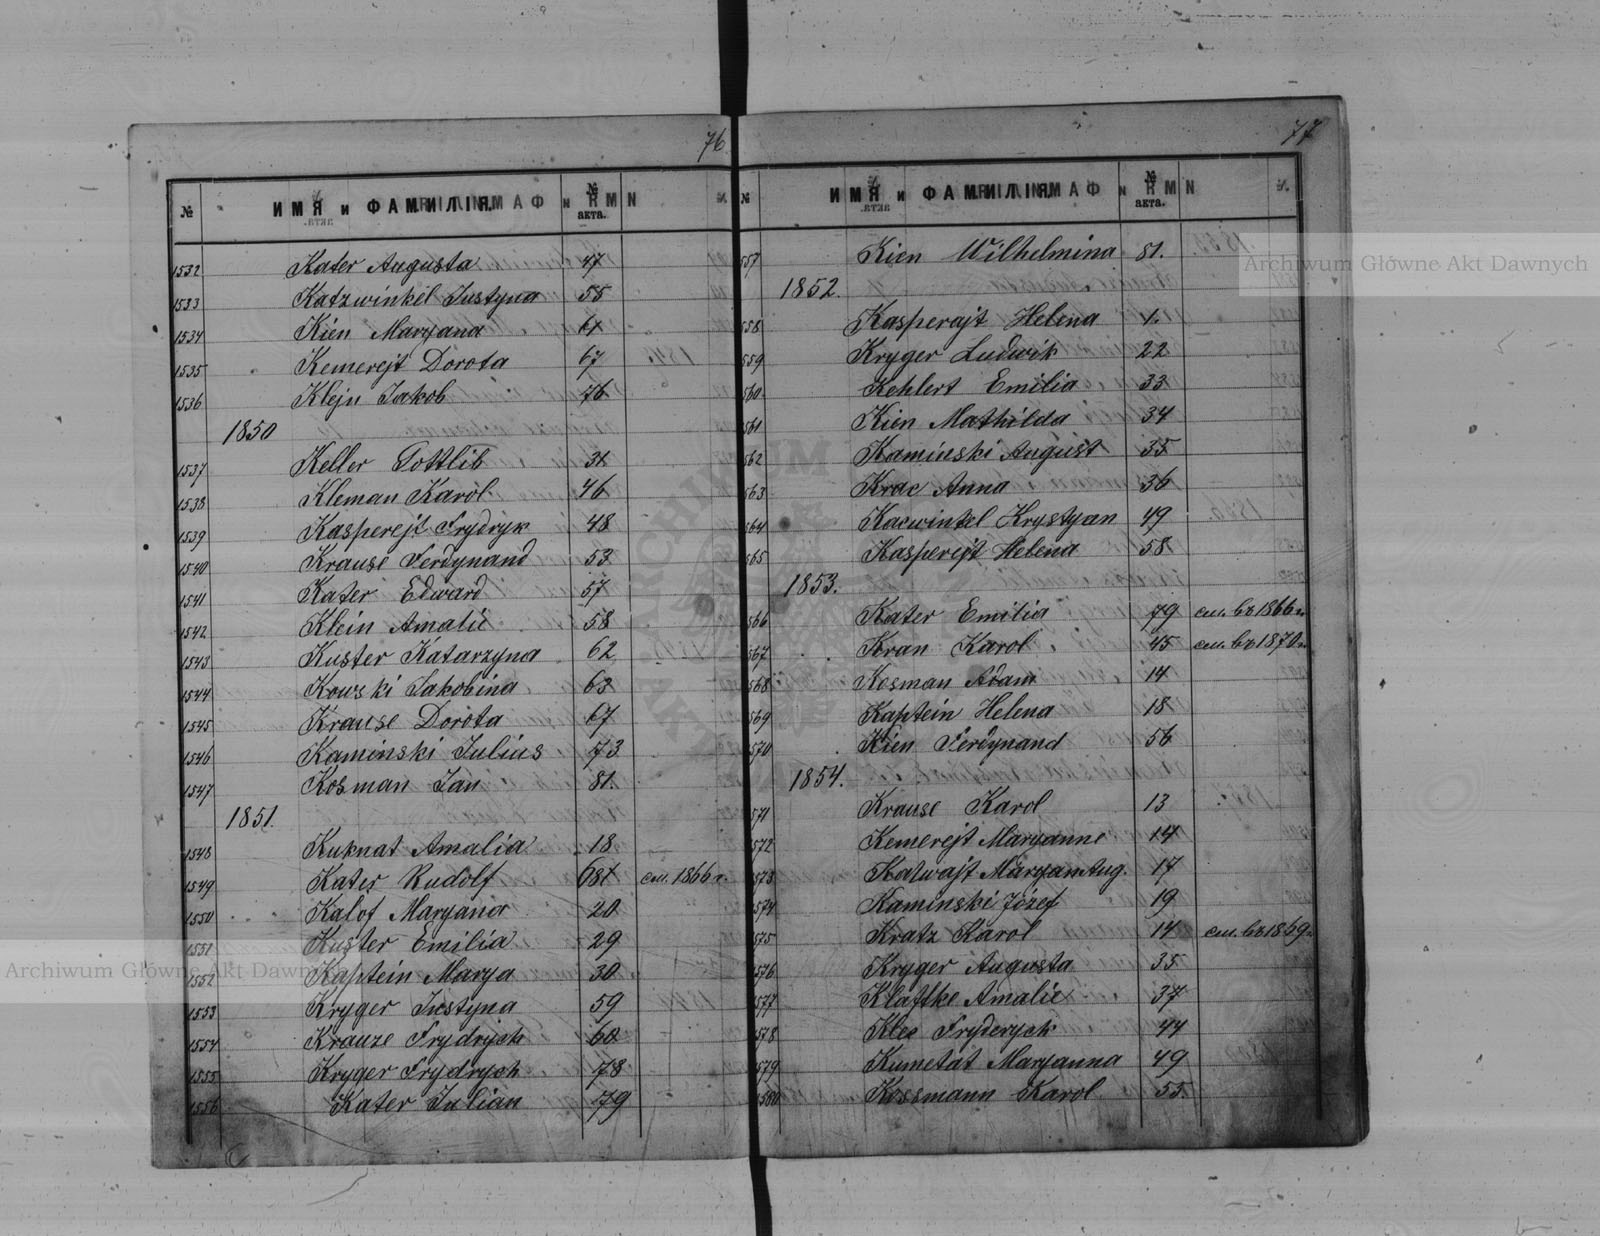 76
№ ИМЯ и ФАМИЛІЯ. № акта.
1532 Kater Augusta 47
1533 Katzwinkel Justyna 55
1534 Kien Maryana 61
1535 Kemerejt Dorota 67
1536 Klejn Jakob 76
1850
1537 Keller Gottlib 31
1538 Kleman Karol 46
1539 Kasperejt Frydryk 48
1540 Krause Ferdynand 53
1541 Kater Edward 57
1542 Klein Amalie 58
1543 Kuster Katarzyna 62
1544 Kowski Jakobina 63
1545 Krause Dorota 67
1546 Kaminski Julius 73
1547 Kosman Jan 81.
1851.
1548 Kuknat Amalia 18
1549 Kater Rudolf см. 1866 г.
1550 Kalof Maryana 20
1551 Kuster Emilia 29
1552 Kaptein Marya 30
1553 Kryger Justyna 59
1554 Krauze Frydrych 60
1555 Kryger Frydrych 78
1556 Kater Julian 79
77
№ ИМЯ и ФАМИЛІЯ. № акта.
557 Kien Wilhelmina 81.
1852.
558 Kasperajt Helena 1.
559 Kryger Ludwik 22
560 Kehlert Emilia 33
561 Kien Mathilda 34
562 Kaminski August 35
563 Krac Anna 36
564 Kacwinkel Krystyan 49
565 Kasperejt Helena 58
1853.
566 Kater Emilia 79 см. въ 1866 г.
567 Kran Karol 45 см. въ 1870 г.
568 Kosman Adam 14
569 Kaptein Helena 18
570 Kien Ferdynand 56
1854.
571 Krause Karol 13
572 Kemerejt Maryanne 14
573 Kalwajt Maryan Aug. 17
574 Kaminski Józef 19
575 Kratz Karol 14 см. въ 1869 г.
576 Kryger Augusta 35
577 Klaftke Amalie 37
578 Klee Fryderyck 44
579 Kumetat Maryanna 49
1580 Kossmann Karol 55.
Archiwum Główne Akt Dawnych
Archiwum Główne Akt Dawnych